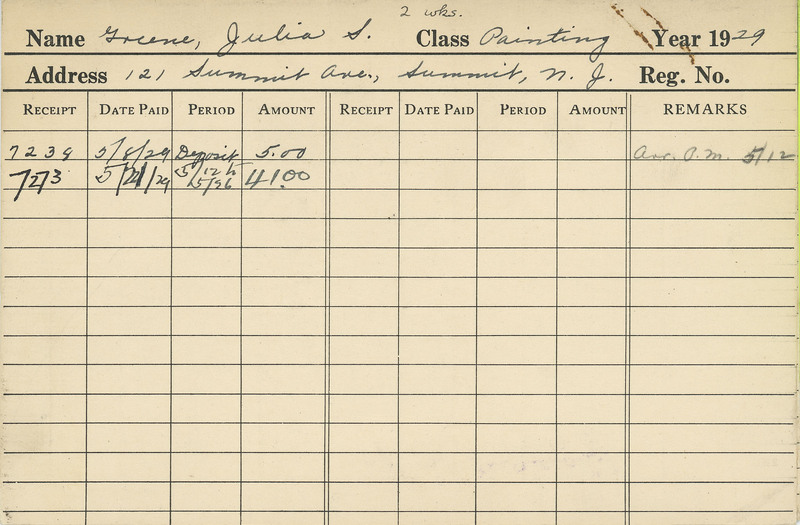 2 wks.
Name Greene, Julia S. Class Painting Year 1929
Address 121 Summit Ave., Summit, N. J. Reg. No.
RECEIPT DATE PAID PERIOD AMOUNT RECEIPT DATE PAID PERIOD AMOUNT REMARKS
7239 5/8/29 Deposit 5.00 Arr. P.M. 5/12
7273 5/21/29 5/12 to 5/26 41.00